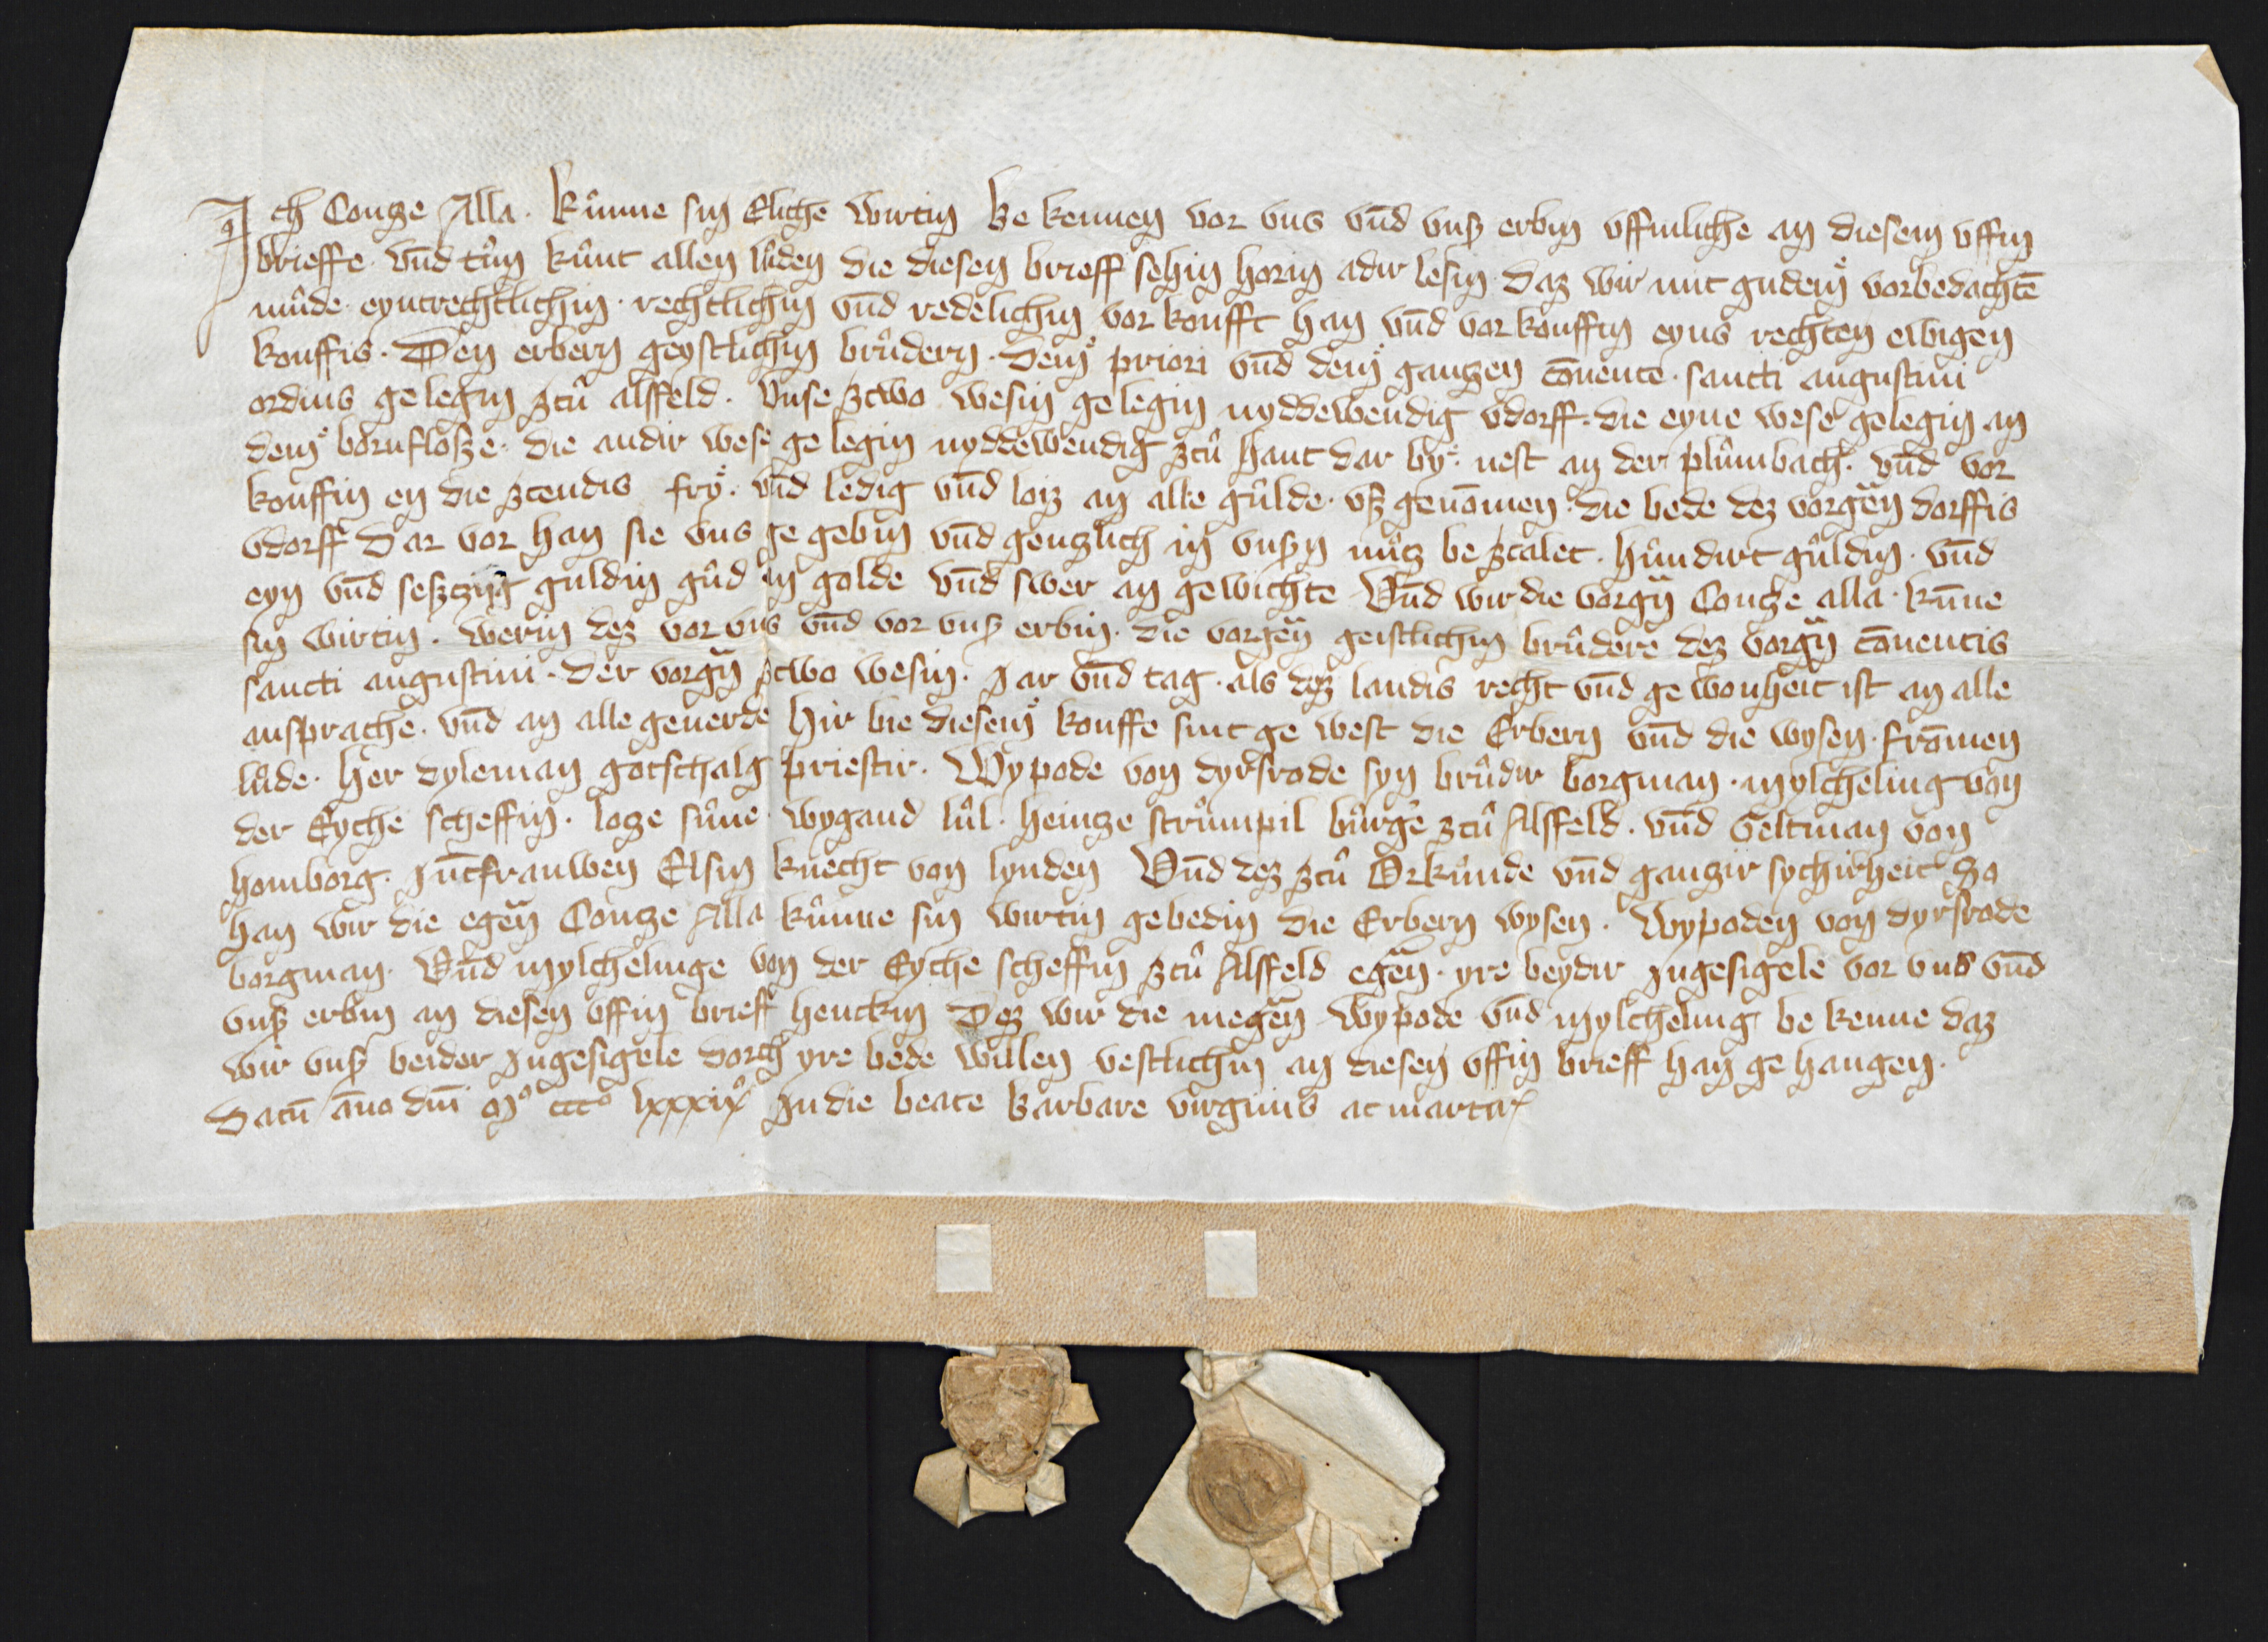 Ich Contze Alla. kûnne sin Eliche wirtin be kennen vor vns vnd vnß erbin vffinliche an diesem vffin
brieffe. vnd tûn kûnt allen lûden die diesen brieff sehin horin adir lesin. daz wir mit gudem vorbedachtē
mûde. eyntrechtlichin. rechtlichin vnd redelichin vor koufft han vnd vor kouffin eyns rechten ewigen
kouffis. Den erbern geystlichin brûdern. dem priori vnd dem gantzen cōuente. sancti augustini
ordins gelegin ztû alffeld. vnse ztwo wesin gelegin nyddewendig vdorff. die eyne wese gelegin an
dem bornfloße. die andir wese ge legin nyddewendig ztû hant dar by. nest an der plûmbach. vnd vor
kouffin en die ztendis fry. vnd ledig vnd loiz an alle gûlde. vß genōmen. die bede dez vorgēn dorffis
vdorff Dar vor han sie vns ge gebin vnd gentzlich in vnßn nûtz be ztalet. hûndirt gûldin. vnd
eyn vnd seßtzig guldin gûd in golde vnd swer an gewichte Vnd wir die vorgn̄ Contze alla. kūne
sin wirtin. werin dez vor vns vnd vor vnß erbin. die vorgēn geistlichin brûdere dez vorgn̄ cōuentis
sancti augustini. der vorgn̄ ztwo wesin. Jar vnd tag. als dez landis recht vnd ge wonheit ist an alle
ansprache. vnd an alle geuerde Hir bie diesem kouffe sint ge west die Erbern vnd die wysen. frōmen
lûde. Her dyleman gotschalg priestir. Wypode von dyrsrode syn brûdir borgman. mylcheling von
der Eyche scheffin. lotze sûne. wygand lûl. heintze strûmpil bûrge ztû Alffeld. vnd Geltman von
homborg. Jūcfrauwen Elsin knecht von lynden Vnd dez ztû Orkûnde vnd gantzir sychirheit So
han wir die egēn Contze Alla kûnne sin wirtin gebedin die Erbern wysen. wypoden von dyrsrode
borgman. Vnd mylchelinge von der Eyche scheffin ztû Alffeld egēn. yre beydir Jngesigele vor vns vnd
vnß erbin an diesen vffin brieff henckin Dez wir die megēn wypode vnd mylcheling be kenne daz
wir vnß beider Jngesigele dorch yre bede willen vestlichin an diesen vffin brieff han ge hangen.
Datū āno dni Mº cccº lxxxixº In die beate Barbare virginis ac martir